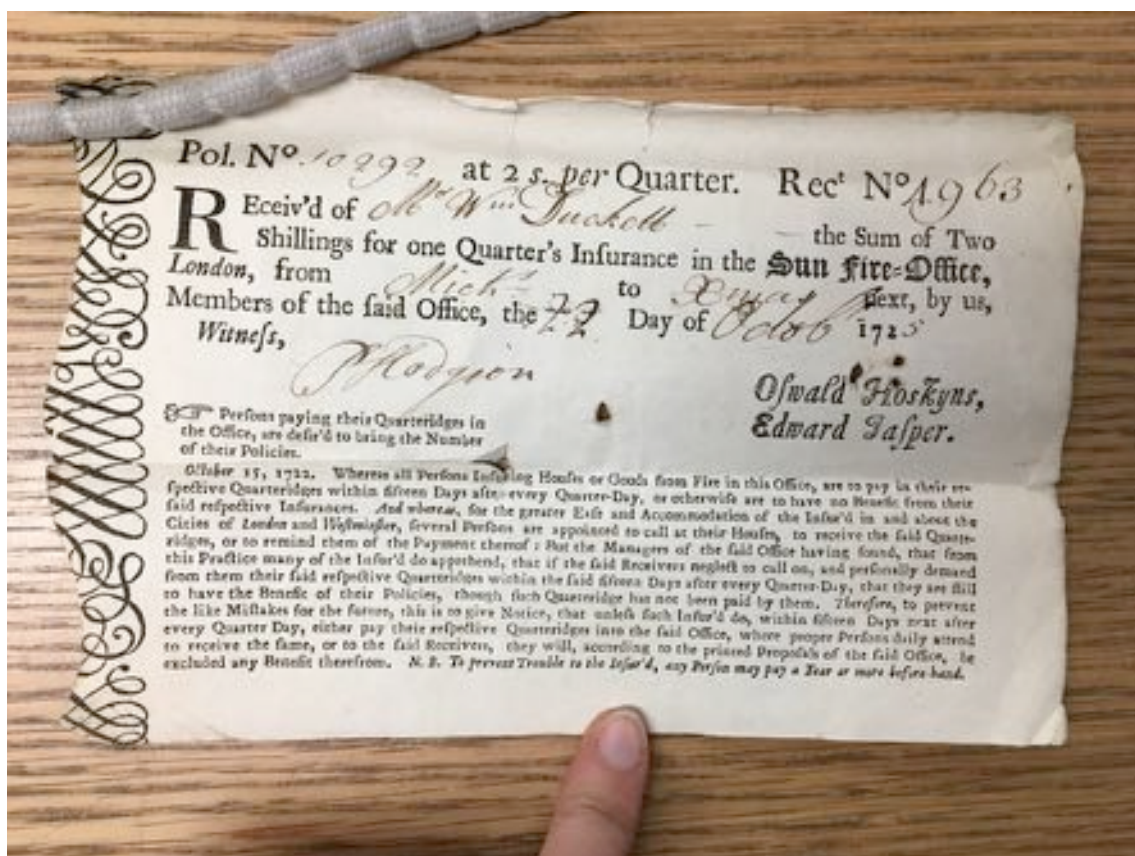 Pol. Nº. 10292 at 2 s. per Quarter. Recᵗ Nº 1963
REceiv'd of Mʳ Wᵐ Duckett the Sum of Two
Shillings for one Quarter's Inſurance in the Sun Fire-Office,
London, from Michˢ to Xmas next, by us,
Members of the ſaid Office, the 22 Day of Octobʳ 1725
Witneſs,
Hodgson
Oſwald Hoskyns,
Edward Jaſper.
☞ Perſons paying their Quarteridges in
the Office, are deſir'd to bring the Number
of their Policies.
October 15, 1722. Whereas all Perſons Inſuring Houſes or Goods from Fire in this Office, are to pay in their re-
ſpective Quarteridges within fifteen Days after every Quarter-Day, or otherwiſe are to have no Benefit from their
ſaid reſpective Inſurances. And whereas, for the greater Eaſe and Accommodation of the Inſur'd in and about the
Cities of London and Weſtminſter, ſeveral Perſons are appointed to call at their Houſes, to receive the ſaid Quarte-
ridges, or to remind them of the Payment thereof: But the Managers of the ſaid Office having found, that from
this Practice many of the Inſur'd do apprehend, that if the ſaid Receivers neglect to call on, and perſonally demand
from them their ſaid reſpective Quarteridges within the ſaid fifteen Days after every Quarter-Day, that they are ſtill
to have the Benefit of their Policies, though ſuch Quarteridge has not been paid by them. Therefore, to prevent
the like Miſtakes for the future, this is to give Notice, that unleſs ſuch Inſur'd do, within fifteen Days next after
every Quarter Day, either pay their reſpective Quarteridges into the ſaid Office, where proper Perſons daily attend
to receive the ſame, or to the ſaid Receivers, they will, according to the printed Propoſals of the ſaid Office, be
excluded any Benefit therefrom. N. B. To prevent Trouble to the Inſur'd, any Perſon may pay a Year or more before-hand.